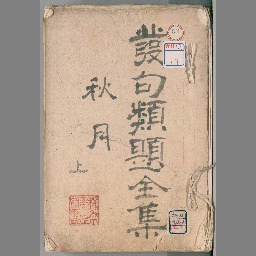 發句類題全集
秋月
上